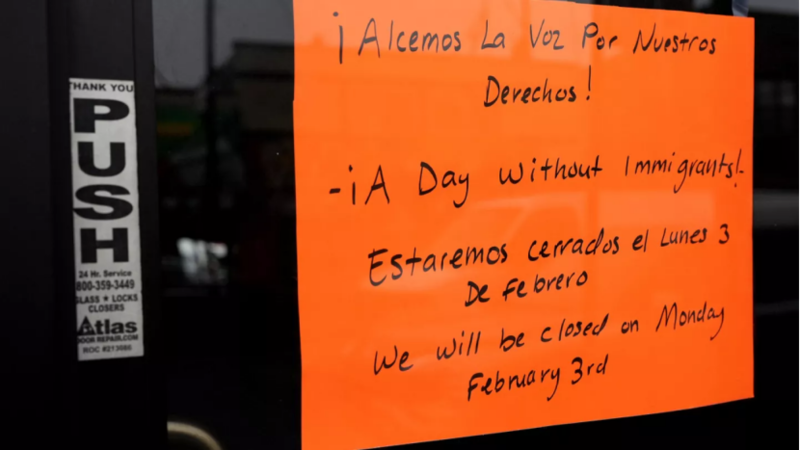 THANK YOU
PUSH
24 Hr. Service
800-359-3449
GLASS ★ LOCKS
CLOSERS
Atlas
DOOR REPAIR.COM
ROC #213086
¡Alcemos La Voz Por Nuestros
Derechos!
-¡A Day without Immigrants!-
Estaremos cerrados el Lunes 3
De Febrero
We will be closed on Monday
February 3rd